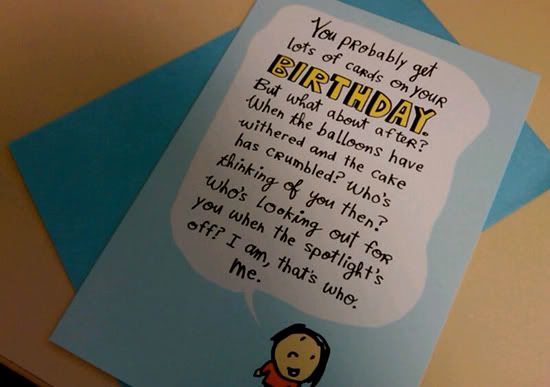 You probably get
lots of cards on your
BIRTHDAY.
But what about after?
When the balloons have
withered and the cake
has crumbled? Who's
thinking of you then?
Who's looking out for
you when the spotlight's
off? I am, that's who.
Me.